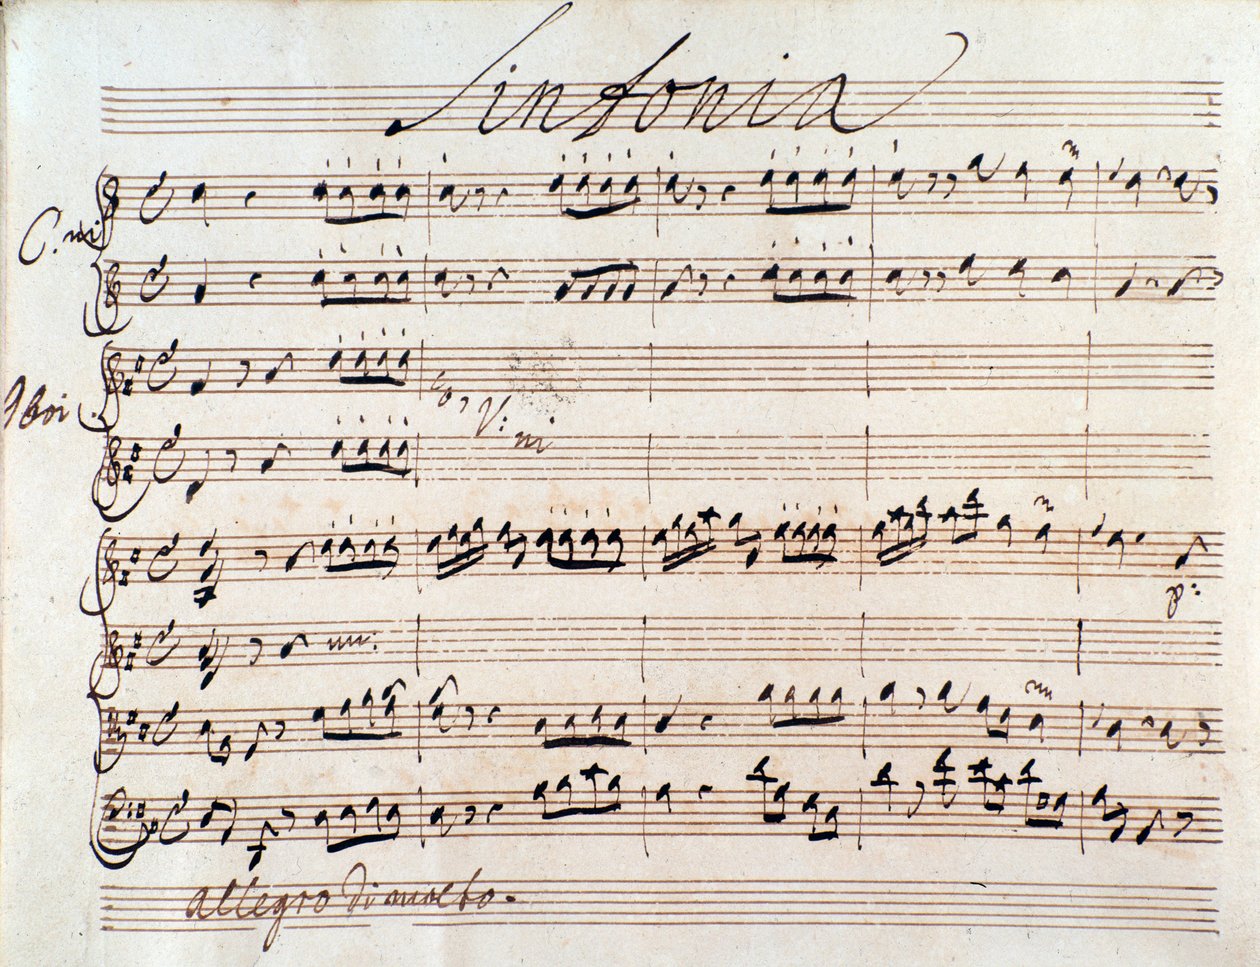 Sinfonia
C.ni
Oboi
Co, V:ni
p:
allegro di molto.